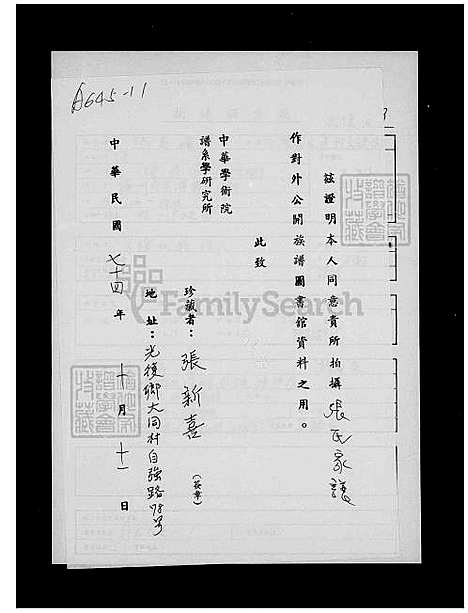 A645-11
茲證明本人同意貴所拍攝張氏家譜
作對外公開族譜圖書館資料之用。
此致
中華學術院
譜系學研究所
珍藏者：張新喜（簽章）
地址：光復鄉大同村自強路78号
中華民國七十四年十月十一日
FamilySearch